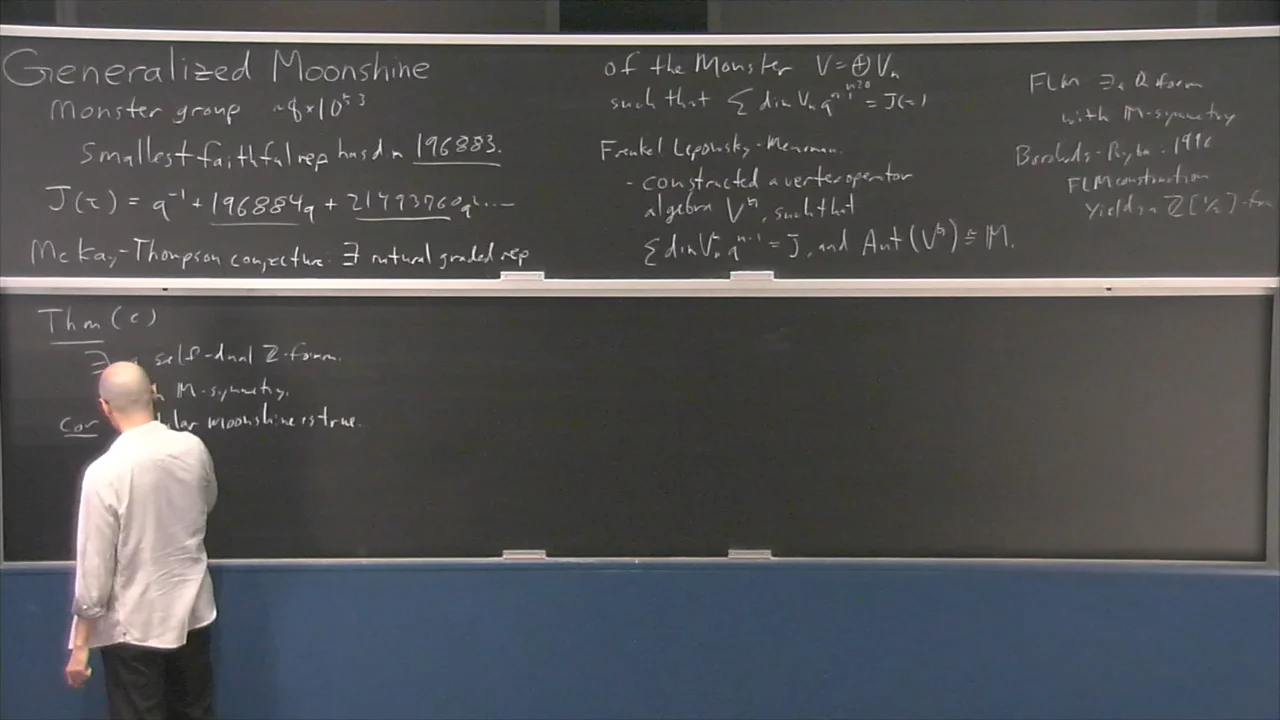 Generalized Moonshine
Monster group ~8×10^53
Smallest faithful rep has dim 196883.
J(τ) = q^-1 + 196884q + 21493760q^2 ...
McKay-Thompson conjecture: ∃ natural graded rep
of the Monster V = ⊕ V_n
such that Σ dim V_n q^n-1 = J(τ)
Frenkel Lepowsky-Meurman.
- constructed a vertex operator
algebra V^♮, such that
Σ dim V_n^♮ q^n-1 = J, and Aut(V^♮) ≅ M.
FLM ∃ a Q form
with M-symmetry
Borcherds-Ryba: 1996
FLM construction
yields a Z[1/2]-form
Thm (C)
∃ self-dual Z-form.
M-symmetry.
Cor moonshine is true.